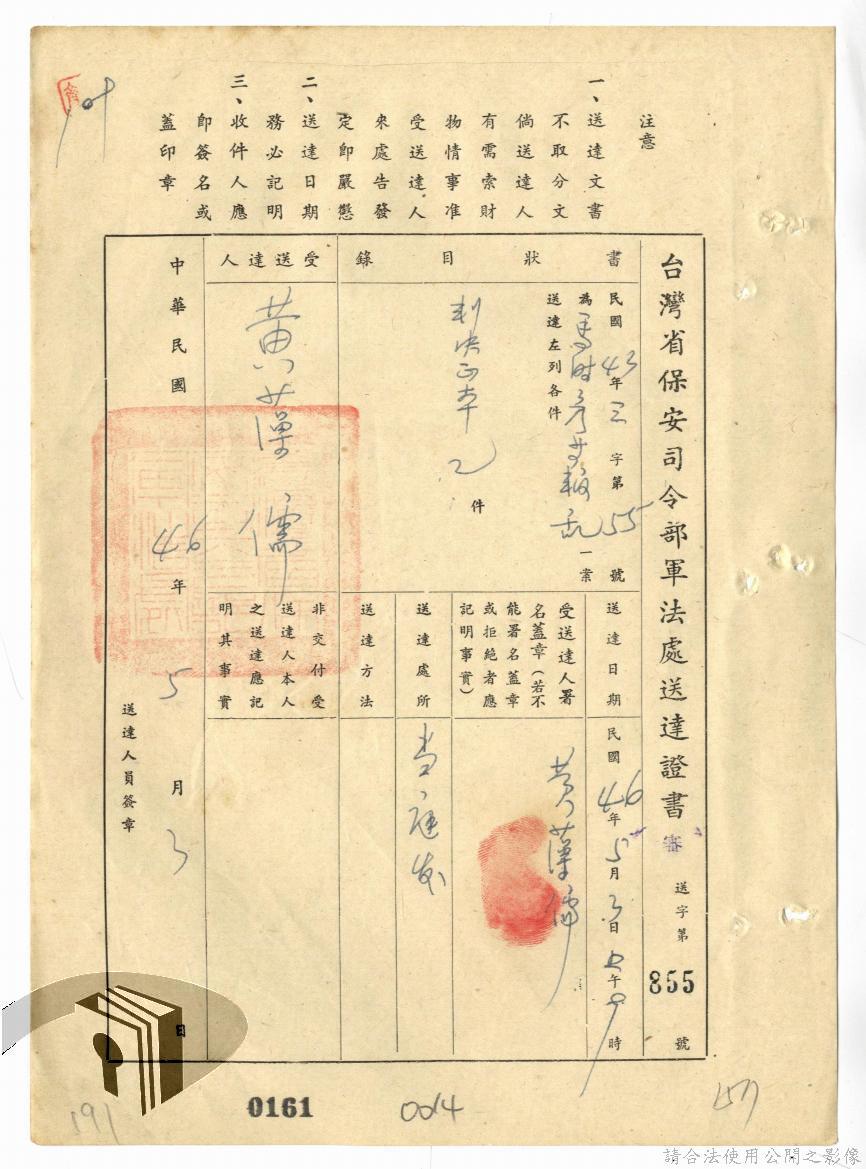 注意
一、送達文書
不取分文
倘送達人
有需索財
物情事准
受送達人
來處告發
定即嚴懲
二、送達日期
務必記明
三、收件人應
即簽名或
蓋印章
台灣省保安司令部軍法處送達證書
審
送字第
855
號
書狀目錄
民國43年三字第55號
為馬時彥等叛亂一案
送達左列各件
判決正本乙件
受送達人
黃漢儒
送達日期
民國46年5月3日
午
時
受送達人署
名蓋章(若不
能署名蓋章
或拒絕者應
記明事實)
黃漢儒
送達處所
當庭發
送達方法
非交付受
送達人本人
之送達應記
明其事實
中華民國46年5月3日
送達人員簽章
0161
0014
157
191
請合法使用公開之影像